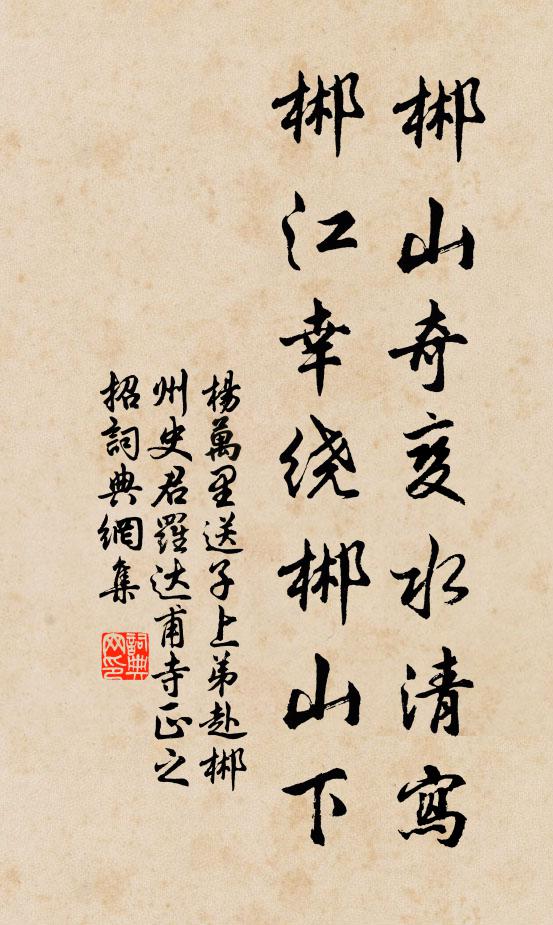 郴山奇变水清寫
郴江幸绕郴山下
楊萬里送子上弟赴郴
州史君羅达甫寺正之
招詞典網集
詞典网印